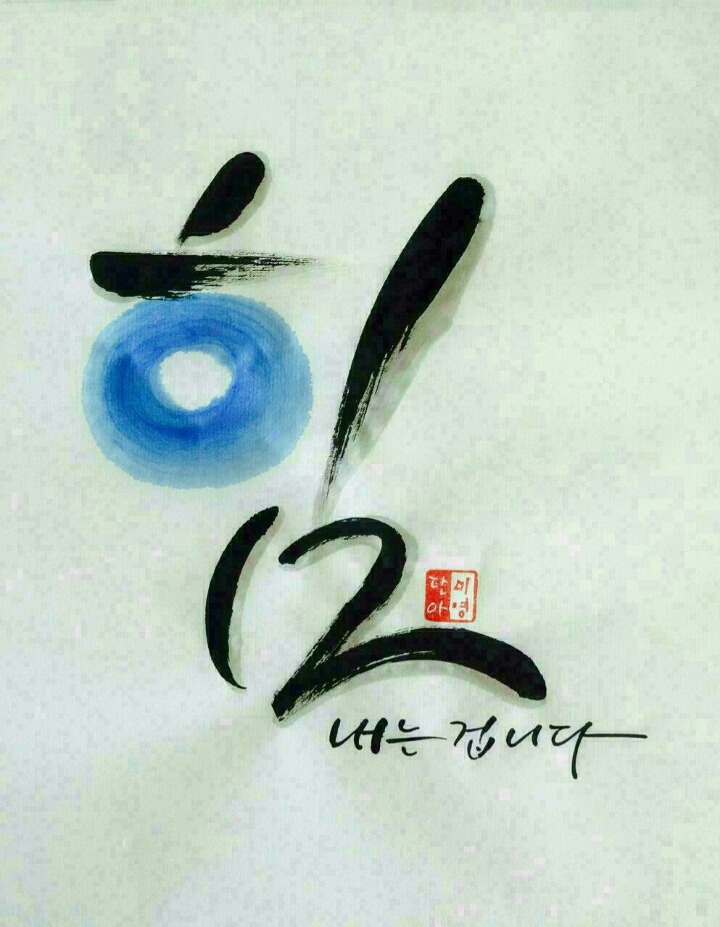 힘
단미
아영
내는 겁니다